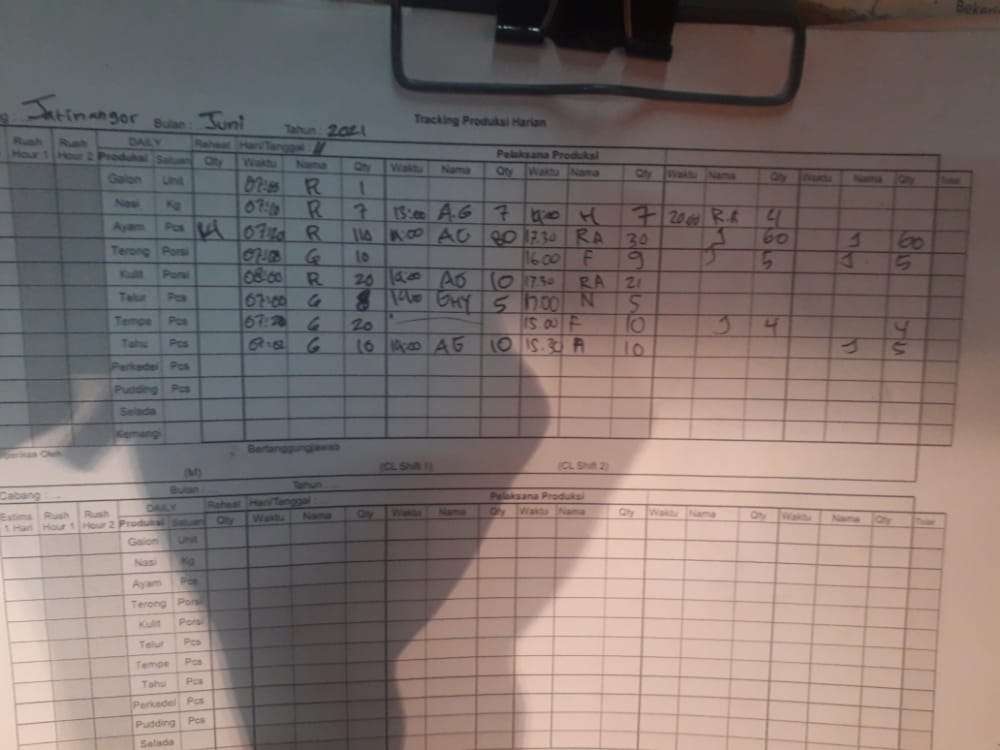 Beker
g : Jatinangor Bulan : Juni Tahun : 2021 Tracking Produksi Harian
Rush Hour 1 Rush Hour 2 DAILY Reheat Hari/Tanggal : 11 Pelaksana Produksi
Produksi Satuan Qty Waktu Nama Qty Waktu Nama Qty Waktu Nama Qty Waktu Nama Qty Nama Qty Total
Galon Unit R 1
Nasi Kg 07:10 R 7 13:00 A.G 7 H 7 20.00 R.A 4
Ayam Pcs 07:20 R 110 AG 80 17.30 RA 30 J 60 J 60
Terong Porsi G 10 16.00 F 9 J 5 J 5
Kulit Porsi 08:00 R 20 AG 10 17.30 RA 21
Telur Pcs 07:00 G 8 GHY 5 17.00 N 5
Tempe Pcs 07:20 G 20 15.00 F 10 J 4 4
Tahu Pcs G 10 AG 10 15.30 A 10 J 5
Perkedel Pcs
Pudding Pcs
Selada
Kemangi
Diperiksa Oleh Bertanggungjawab
(M) (CL Shift 1) (CL Shift 2)
Cabang : ... Bulan : ... Tahun : ...
Estima 1 Hari Rush Hour 1 Rush Hour 2 DAILY Reheat Hari/Tanggal : ... Pelaksana Produksi
Produksi Satuan Qty Waktu Nama Qty Waktu Nama Qty Waktu Nama Qty Waktu Nama Qty Waktu Nama Qty Total
Galon Unit
Nasi Kg
Ayam Pcs
Terong Porsi
Kulit Porsi
Telur Pcs
Tempe Pcs
Tahu Pcs
Perkedel Pcs
Pudding Pcs
Selada